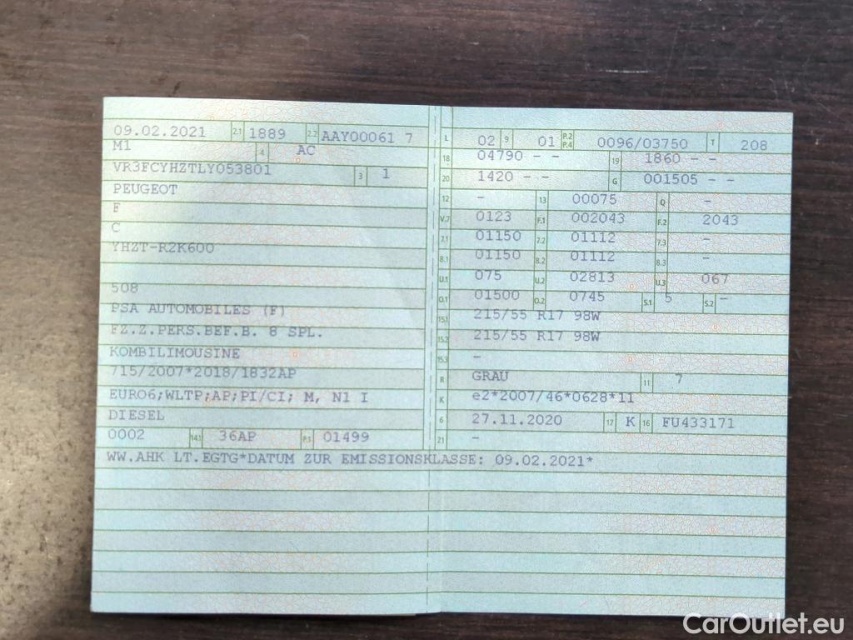 09.02.2021 2.1 1889 2.2 AAY00061 7
M1 4 AC
VR3FCYHZTLY053801 3 1
PEUGEOT
F
C
YHZT-R2K600
508
PSA AUTOMOBILES (F)
FZ.Z.PERS.BEF.B. 8 SPL.
KOMBILIMOUSINE
715/2007*2018/1832AP
EURO6;WLTP;AP;PI/CI; M, N1 I
DIESEL
0002 14.1 36AP P.1 01499
WW.AHK LT.EGTG*DATUM ZUR EMISSIONSKLASSE: 09.02.2021*
L 02 9 01 P.2 P.4 0096/03750 T 208
18 04790 - - 19 1860 - -
20 1420 - - G 001505 - -
12 - 13 00075 Q -
V.7 0123 F.1 002043 F.2 2043
7.1 01150 7.2 01112 7.3 -
8.1 01150 8.2 01112 8.3 -
U.1 075 U.2 02813 U.3 067
O.1 01500 O.2 0745 S.1 5 S.2 -
15.1 215/55 R17 98W
15.2 215/55 R17 98W
15.3 -
R GRAU 11 7
K e2*2007/46*0628*11
6 27.11.2020 17 K 16 FU433171
21 -
CarOutlet.eu